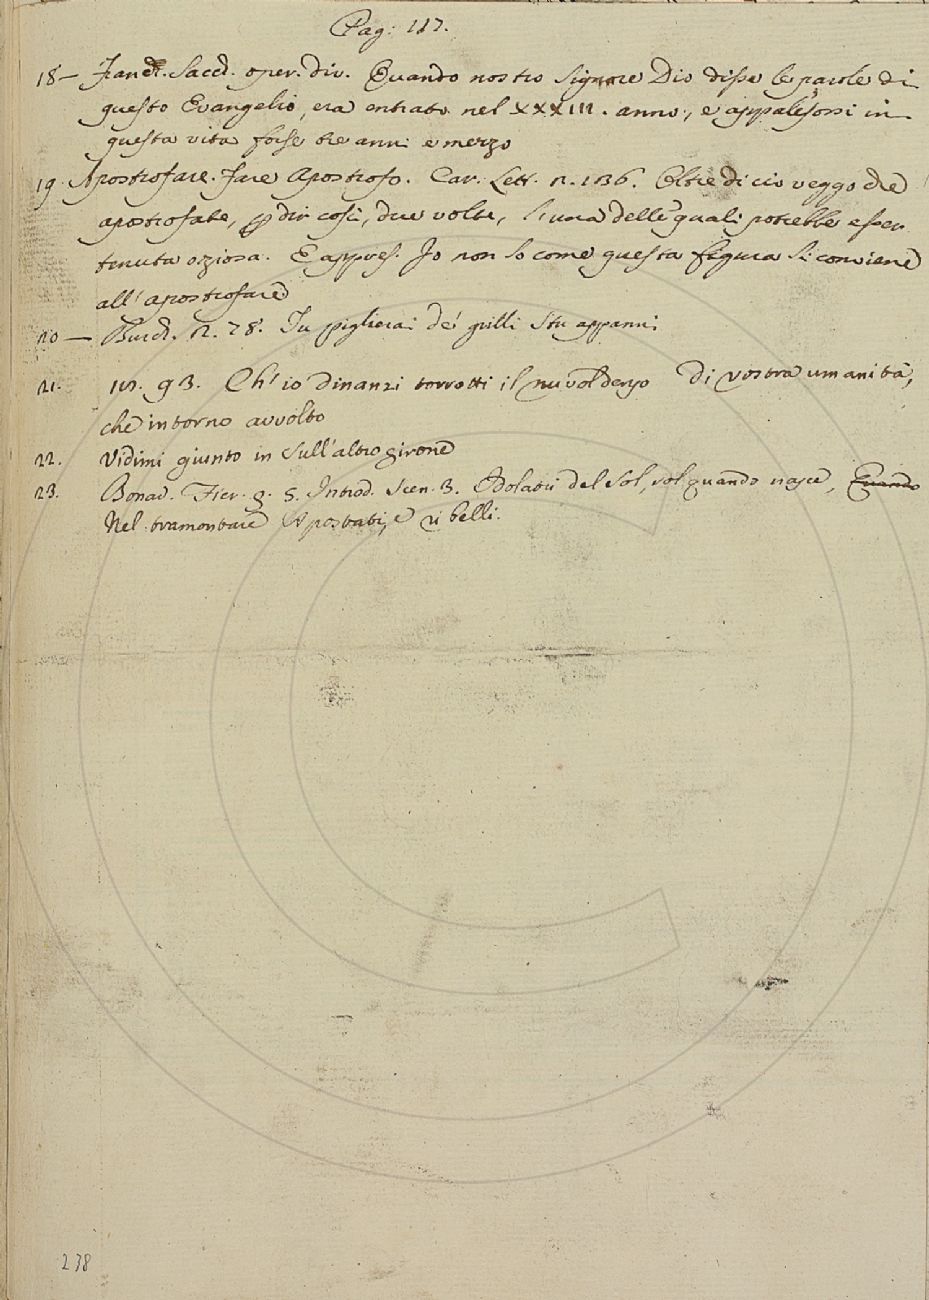 Pag: 117.
18 — Franc. Sacch. oper. div. Quando nostro Signore Dio disse le parole di
questo Evangelio, era entrato nel XXXIII. anno, e appalesossi in
questa vita forse tre anni e mezzo
19. Apostrofare. Fare Apostrofo. Car. Lett. n. 136. Oltre di ciò veggo che
apostrofate, p dir così, due volte, l'una delle quali potrebbe esser
tenuta oziosa. E appres. Io non so come questa figura si conviene
all'apostrofare
20 — Burch. n. 78. Tu piglierai de' grilli Stu appanni
21. 93. Ch'io dinanzi torrotti il nuvol denso Di vostra umanità,
che intorno avvolto
22. Vidimi giunto in sull'altro girone
23. Bonar. Fier. g. 5. Introd. Scen. 3. Idolatri del Sol, sol quando nasce, Quando
Nel tramontare Apostati, e ribelli.
238